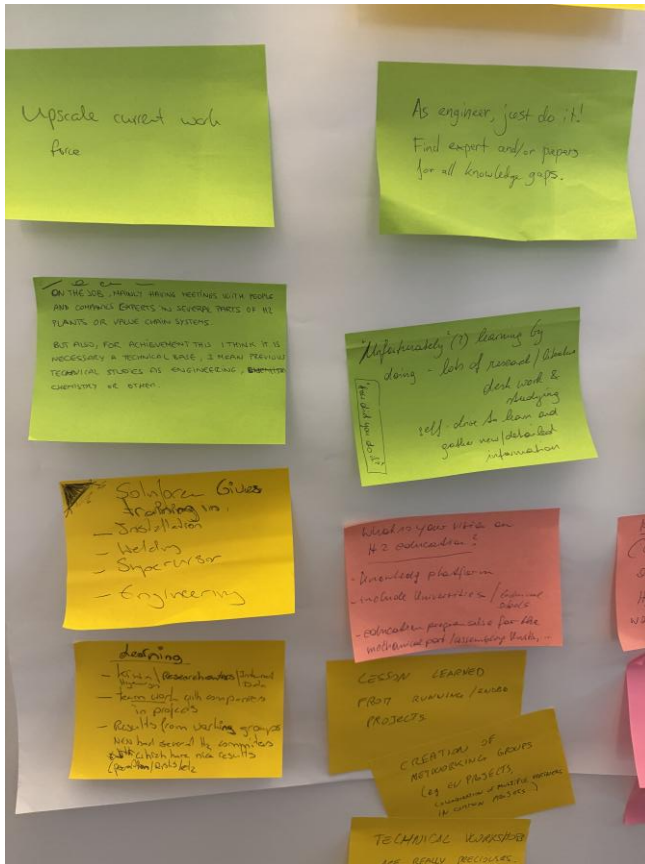 Upscale current work
force
As engineer, just do it!
Find expert and/or papers
for all knowledge gaps.
ON THE JOB, MAINLY HAVING MEETINGS WITH PEOPLE
AND COMPANIES EXPERTS IN SEVERAL PARTS OF H2
PLANTS OR VALUE CHAIN SYSTEMS.
BUT ALSO, FOR ACHIEVEMENT THIS I THINK IT IS
NECESSARY A TECHNICAL BASE, I MEAN PREVIOUS
TECHNICAL STUDIES AS ENGINEERING,
CHEMISTRY OR OTHER.
"Unfortunately" (!) learning by
doing - lots of research / literature
desk work &
studying
self-drive to learn and
gather new/detailed
information
"how did you do it?"
Gives
training in.
- Installation
- Welding
- Supervisor
- Engineering
What is your vision on
H2 education?
- Knowledge platform
- include Universities /
- education programme for the
mechanical part / assembly units,...
Learning
- / Internal
Data
- Team work with companies
in projects
- Results from working groups
had several H2
which have nice results
LESSON LEARNED
FROM RUNNING /
PROJECTS
CREATION OF
NETWORKING GROUPS
(eg EU PROJECTS,
COMBINATION OF MULTIPLE PARTNERS
IN COMMON PROJECT)
TECHNICAL WORKSHOPS
ARE REALLY